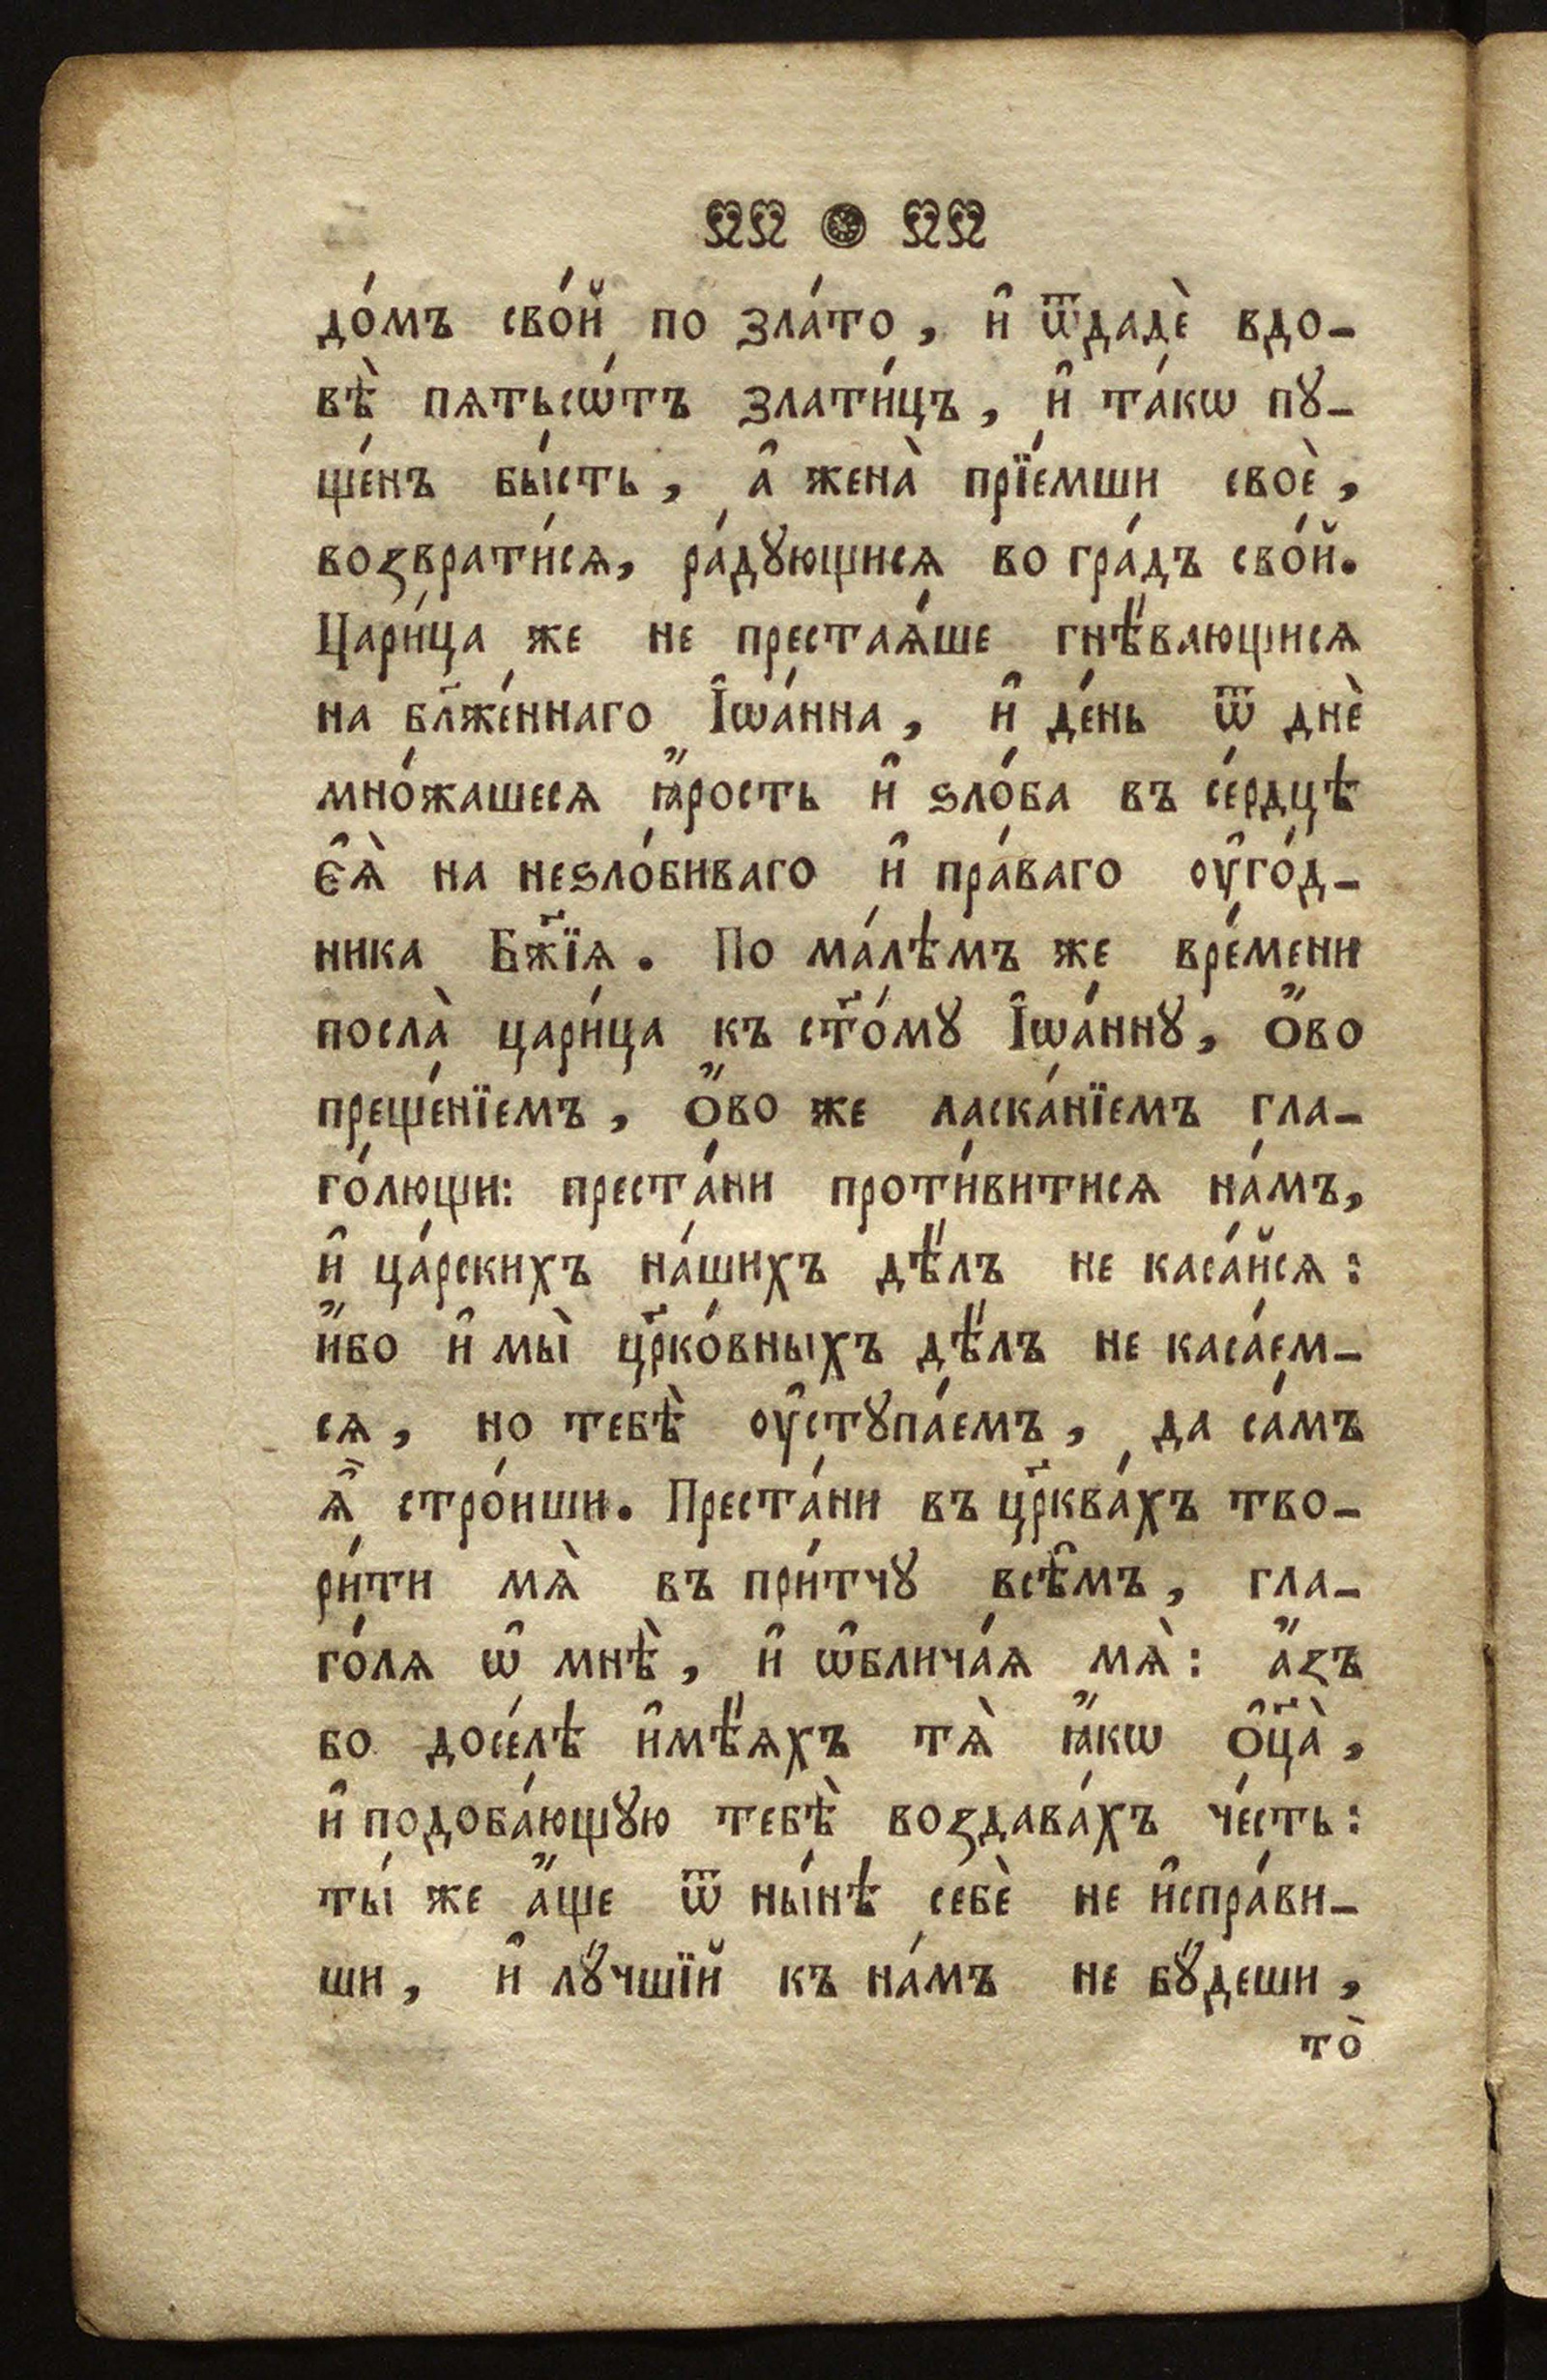 до́мъ сво́й по зла́то, и҆ ѿдадѐ вдо-
вѣ̀ пѧтьсѡ́тъ злати́цъ, и҆ та́кѡ пꙋ-
ще́нъ бы́сть, а҆ жена̀ прїе́мши своѐ,
возврати́сѧ, ра́дꙋющисѧ во гра́дъ сво́й.
Цари́ца же не престаѧ́ше гнѣ́вающисѧ
на бл҃же́ннаго І҆ѡа́нна, и҆ де́нь ѿ днѐ
мно́жашесѧ ꙗ҆́рость и҆ ѕло́ба въ се́рдцѣ
є҆ѧ̀ на неѕло́биваго и҆ пра́ваго оу҆го́д-
ника Бж҃їѧ. По ма́лѣмъ же вре́мени
посла̀ цари́ца къ ст҃о́мꙋ І҆ѡа́ннꙋ, ѻ҆́во
преще́нїемъ, ѻ҆́во же ласка́нїемъ гла-
го́лющи: преста́ни проти́витисѧ на́мъ,
и҆ ца́рскихъ на́шихъ дѣ́лъ не каса́йсѧ:
и҆́бо и҆ мы̀ цр҃ко́вныхъ дѣ́лъ не каса́ем-
сѧ, но тебѣ̀ оу҆стꙋпа́емъ, да са́мъ
ѧ҆̀ стро́иши. Преста́ни въ цр҃ква́хъ тво-
ри́ти мѧ̀ въ при́тчꙋ всѣ̑мъ, гла-
го́лѧ ѡ҆ мнѣ̀, и҆ ѡ҆блича́ѧ мѧ̀: а҆́зъ
бо досе́лѣ и҆мѣ́ѧхъ тѧ̀ ꙗ҆́кѡ ѻ҆ц҃а̀,
и҆ подоба́ющꙋю тебѣ̀ воздава́хъ че́сть:
ты́ же а҆́ще ѿ ны́нѣ себѐ не и҆спра́ви-
ши, и҆ лꙋ́чшїй къ на́мъ не бꙋ́деши,
то̀